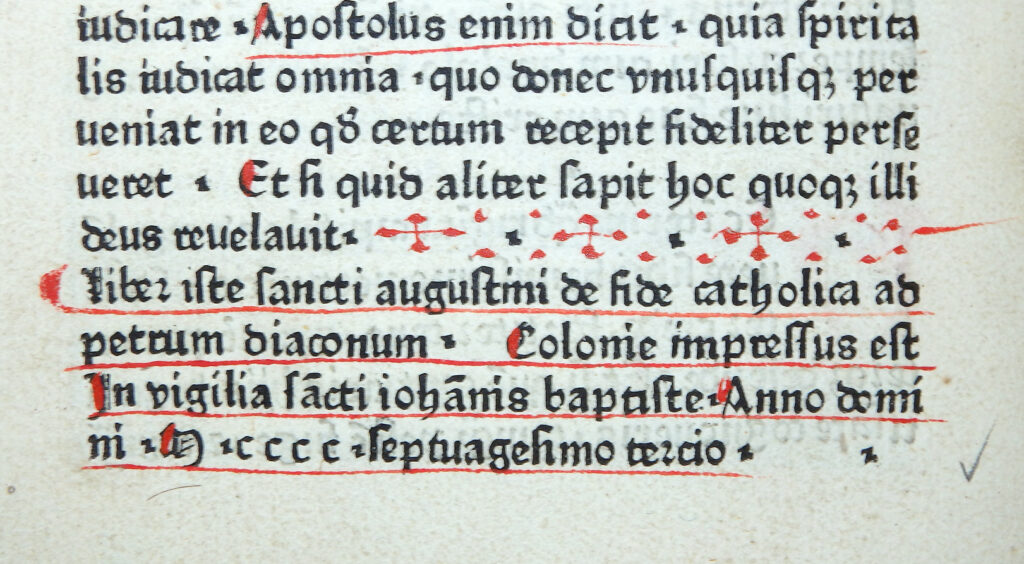 iudicare . Apostolus enim dicit . quia ſpirita
lis iudicat omnia . quo donec vnuſquiſqꝫ per
ueniat in eo qđ certum recepit fideliter perſe
ueret . Et ſi quid aliter ſapit hoc quoqꝫ illi
deus reuelauit.
Liber iſte ſancti auguſtini de fide catholica ad
petrum diaconum . Colonie impreſſus eſt
In vigilia ſācti iohānis baptiſte. Anno domi
ni . M . c c c c . ſeptuageſimo tercio .